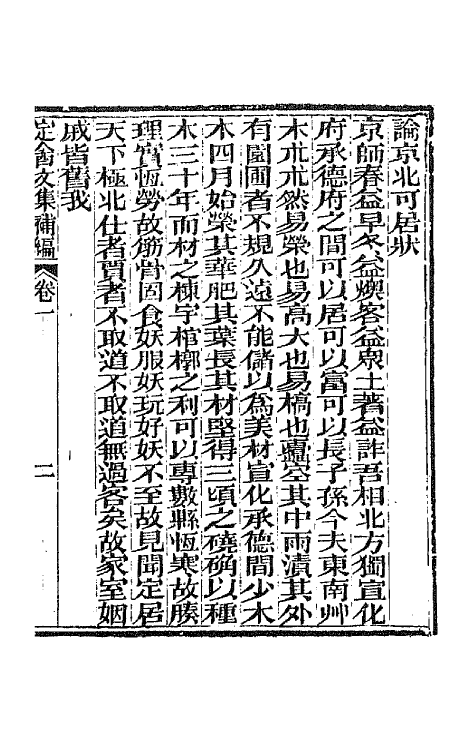 論京北可居狀
京師春益早冬益燠客益衆土著益詐吾相北方獨宣化
府承德府之間可以居可以富可以長子孫今夫東南艸
木朮朮然易榮也易高大也易槁也蠹空其中雨漬其外
有園圃者不規久遠不能儲以爲美材宣化承德間少木
木四月始榮其華肥其葉長其材堅得三頃之磽确以種
木三十年而材之棟宇棺槨之利可以專數縣恆寒故腠
理實恆勞故筋骨固食妖服妖玩好妖不至故見聞定居
天下極北仕者賈者不取道不取道無過客矣故家室姻
戚皆舊我
定盦文集補編
卷一
二